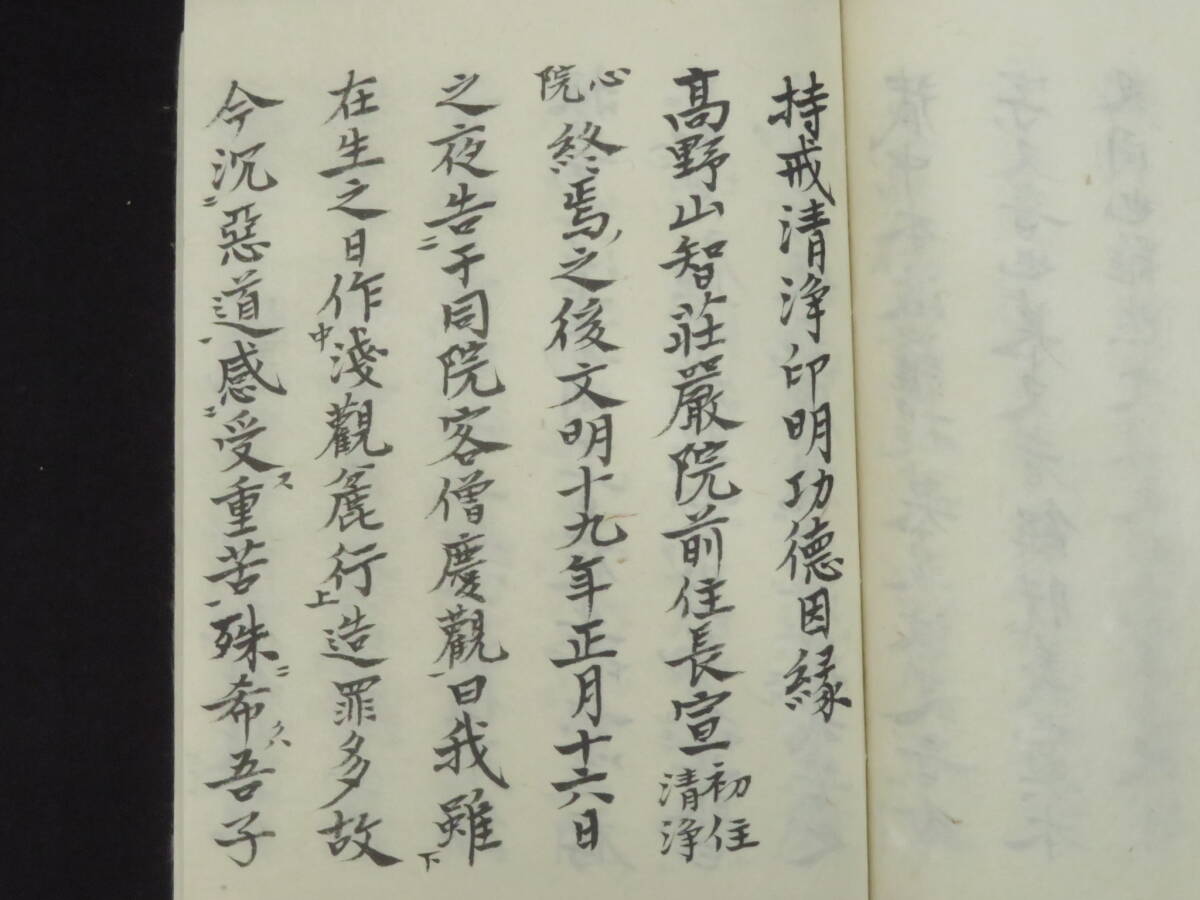 持戒清浄印明功德因縁
髙野山智莊嚴院前住長宣初住清浄
心院終焉之後文明十九年正月十六日
之夜告二于同院客僧慶觀一曰我雖下
在生之日作中淺觀麁行上造罪多故
今沉二惡道一感二受ス重苦一殊ニ希クハ吾子